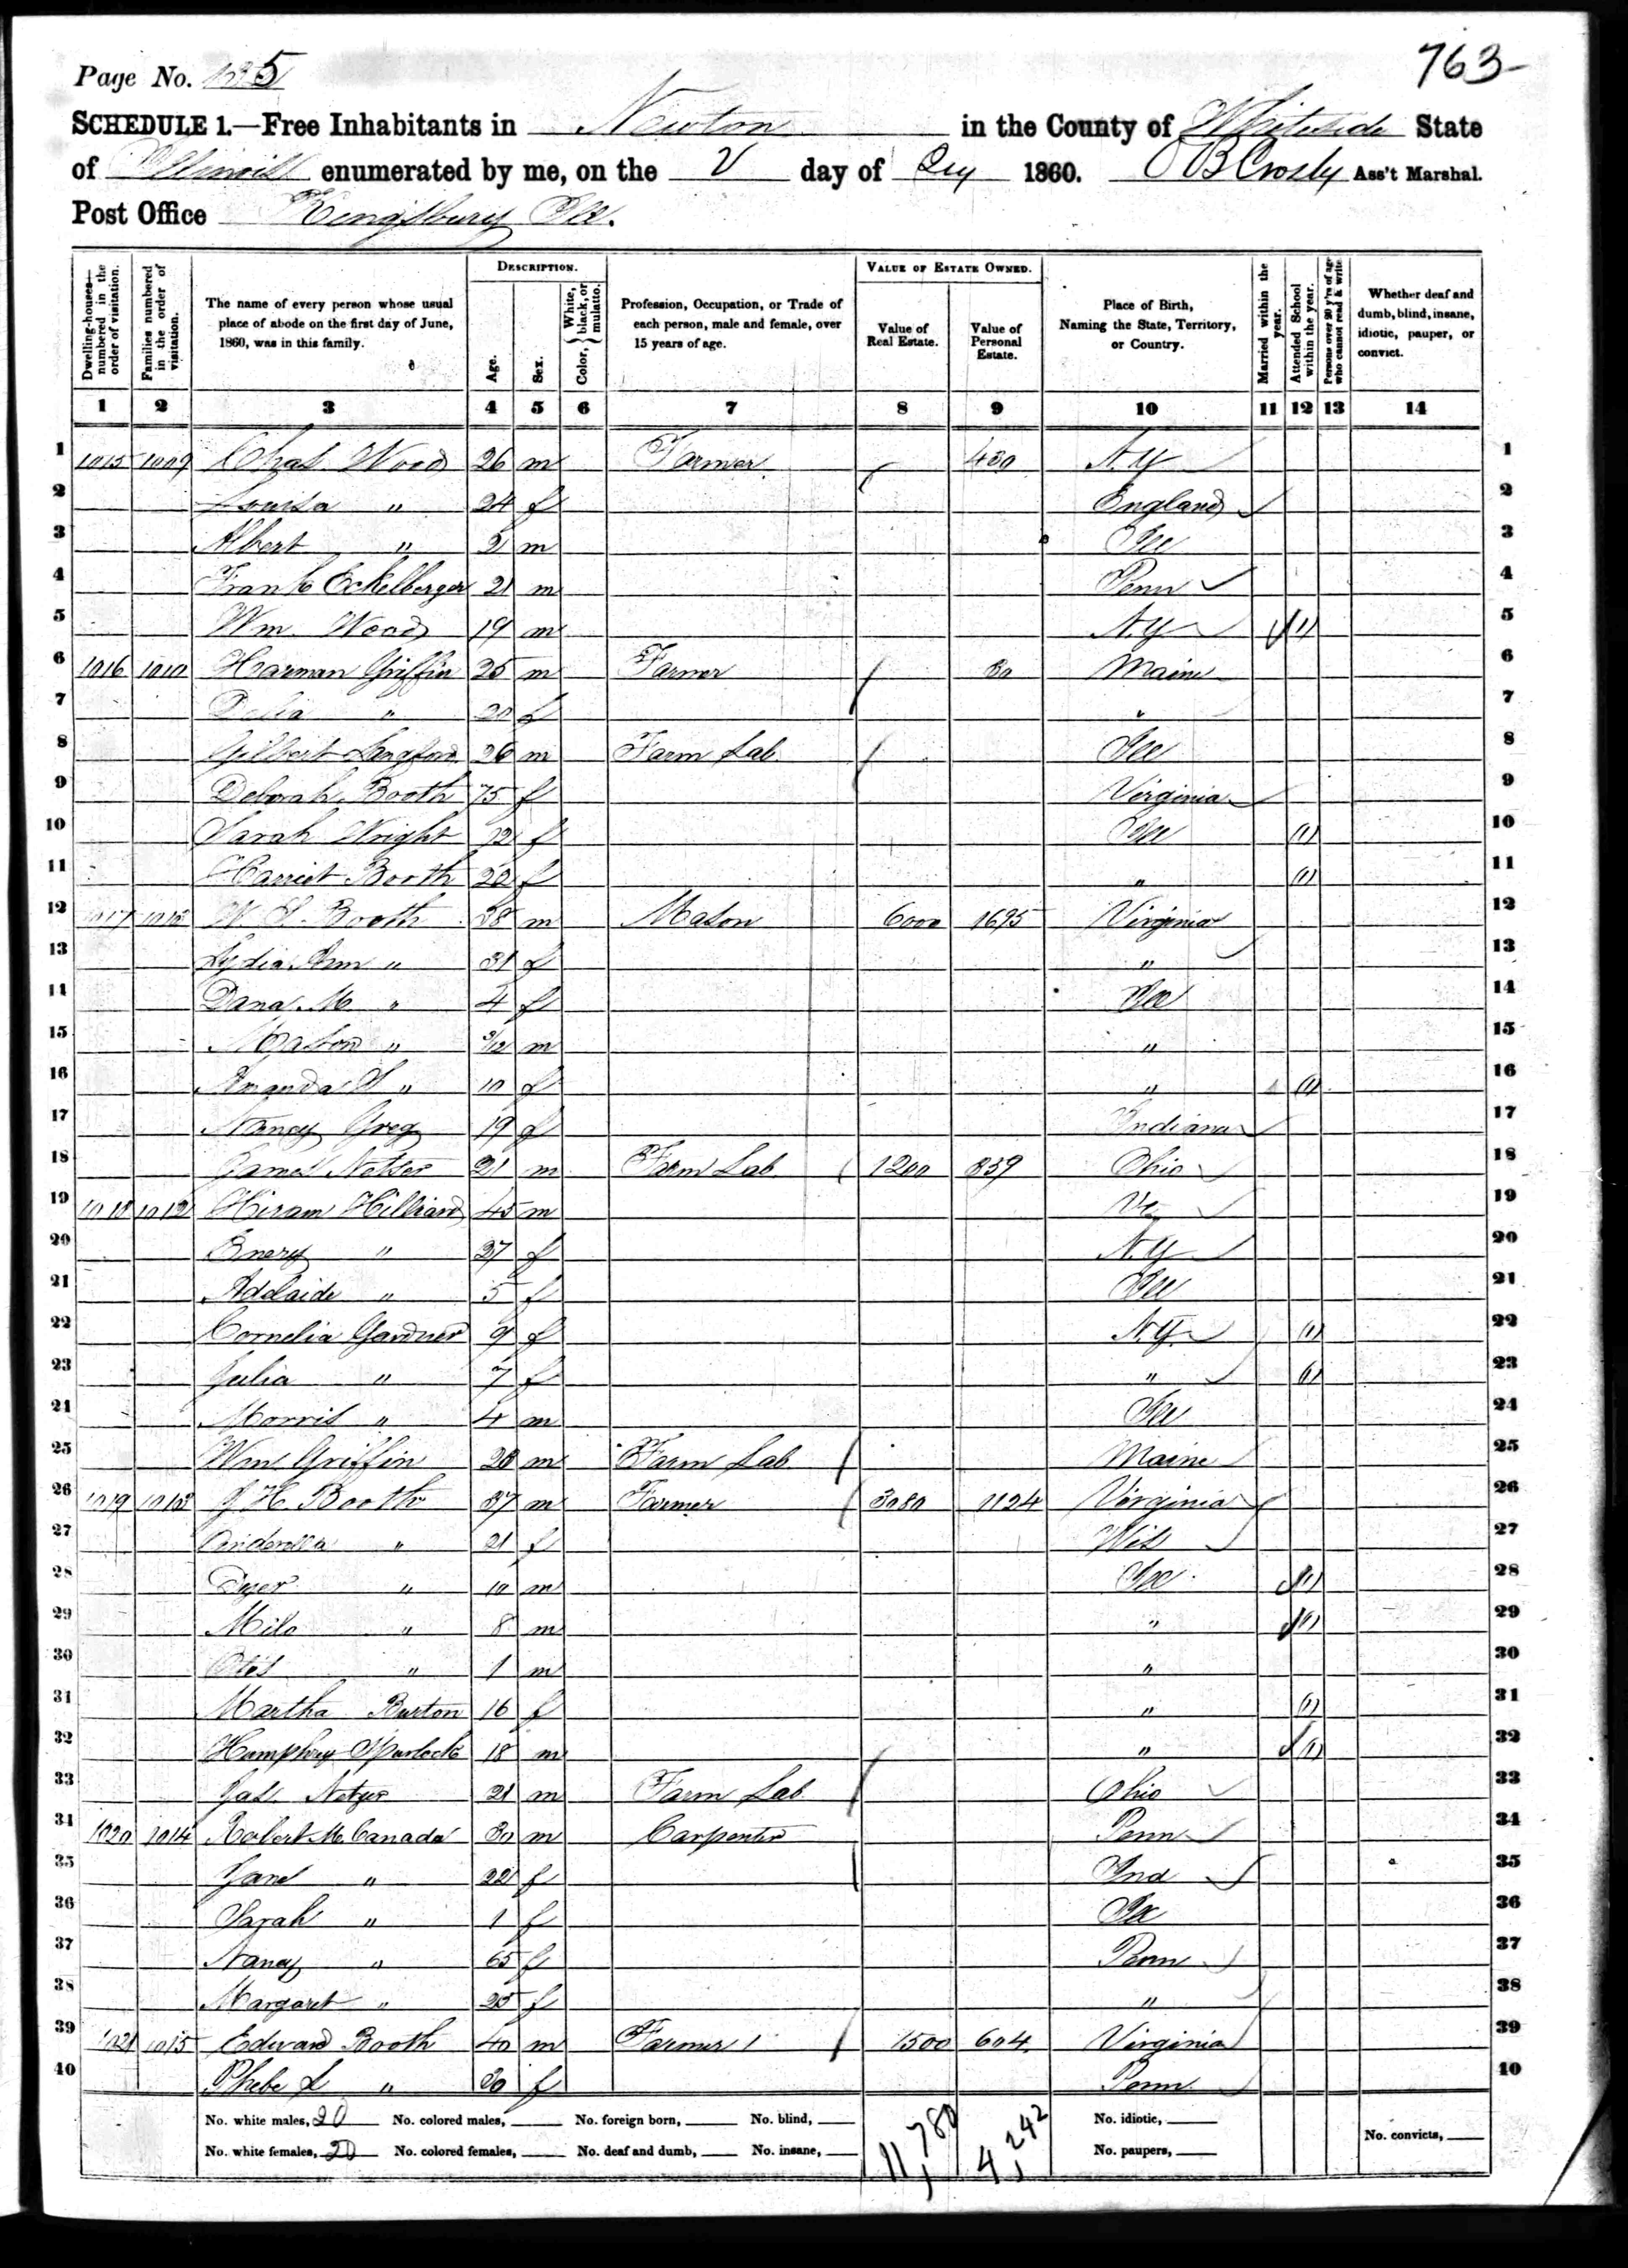 763-
Page No. 135
SCHEDULE 1.—Free Inhabitants in Newton in the County of Whiteside State
of Illinois enumerated by me, on the 2 day of Aug 1860. O B Crosby Ass't Marshal.
Post Office Kingsbury Ill.
Dwelling-houses—numbered in the order of visitation. Families numbered in the order of visitation. The name of every person whose usual place of abode on the first day of June, 1860, was in this family. DESCRIPTION. Age. Sex. Color, White, black, or mulatto. Profession, Occupation, or Trade of each person, male and female, over 15 years of age. VALUE OF ESTATE OWNED. Value of Real Estate. Value of Personal Estate. Place of Birth, Naming the State, Territory, or Country. Married within the year. Attended School within the year. Persons over 20 y'rs of age who cannot read & write. Whether deaf and dumb, blind, insane, idiotic, pauper, or convict.
1 2 3 4 5 6 7 8 9 10 11 12 13 14
1 1015 1009 Chas. Wood 26 m Farmer 430 N.Y 1
2 Louisa " 24 f England 2
3 Albert " 2 m Ill 3
4 Frank Eckelberger 21 m Penn 4
5 Wm. Wood 19 m N.Y 1 5
6 1016 1010 Harman Griffin 25 m Farmer 80 Maine 6
7 Delia " 20 f " 7
8 Gilbert Langford 26 m Farm Lab Ill 8
9 Deborah Booth 75 f Virginia 9
10 Sarah Wright 12 f Ill 1 10
11 Harriet Booth 20 f " 1 11
12 1017 W. S. Booth 38 m Mason 6000 1695 Virginia 12
13 Lydia Ann " 31 f " 13
14 Dana M " 4 f Ill 14
15 Mason " 3/12 m " 15
16 Amanda S " 10 f " 1 16
17 Nancy Greg 19 f Indiana 17
18 James 21 m Farm Lab 1200 859 Ohio 18
19 1018 1012 Hiram Hilliard 45 m Vt 19
20 Emery " 27 f N.Y 20
21 Adelaide " 5 f Ill 21
22 Cornelia Gardner 9 f N.Y. 1 22
23 Julia " 7 f " 1 23
24 Morris " 4 m Ill 24
25 Wm Griffin 20 m Farm Lab Maine 25
26 1019 1013 J H Booth 37 m Farmer 3080 1124 Virginia 26
27 Cinderella " 21 f Wis 27
28 " 10 m Ill 1 28
29 Milo " 8 m " 1 29
30 Otis " 1 m " 30
31 Martha Burton 16 f " 1 31
32 Humphrey Spurlock 18 m " 1 32
33 Jas. 21 m Farm Lab Ohio 33
34 1020 1014 Robert McCanada 30 m Carpenter Penn 34
35 Jane " 22 f Ind 35
36 Sarah " 1 f Ill 36
37 Nancy " 65 f Penn 37
38 Margaret " 25 f " 38
39 1021 1015 Edward Booth 40 m Farmer 1 1500 604 Virginia 39
40 Phebe L " 30 f Penn 40
No. white males, 20 No. colored males, No. foreign born, No. blind, 11,780 4,242 No. idiotic, No. convicts,
No. white females, 20 No. colored females, No. deaf and dumb, No. insane, No. paupers,